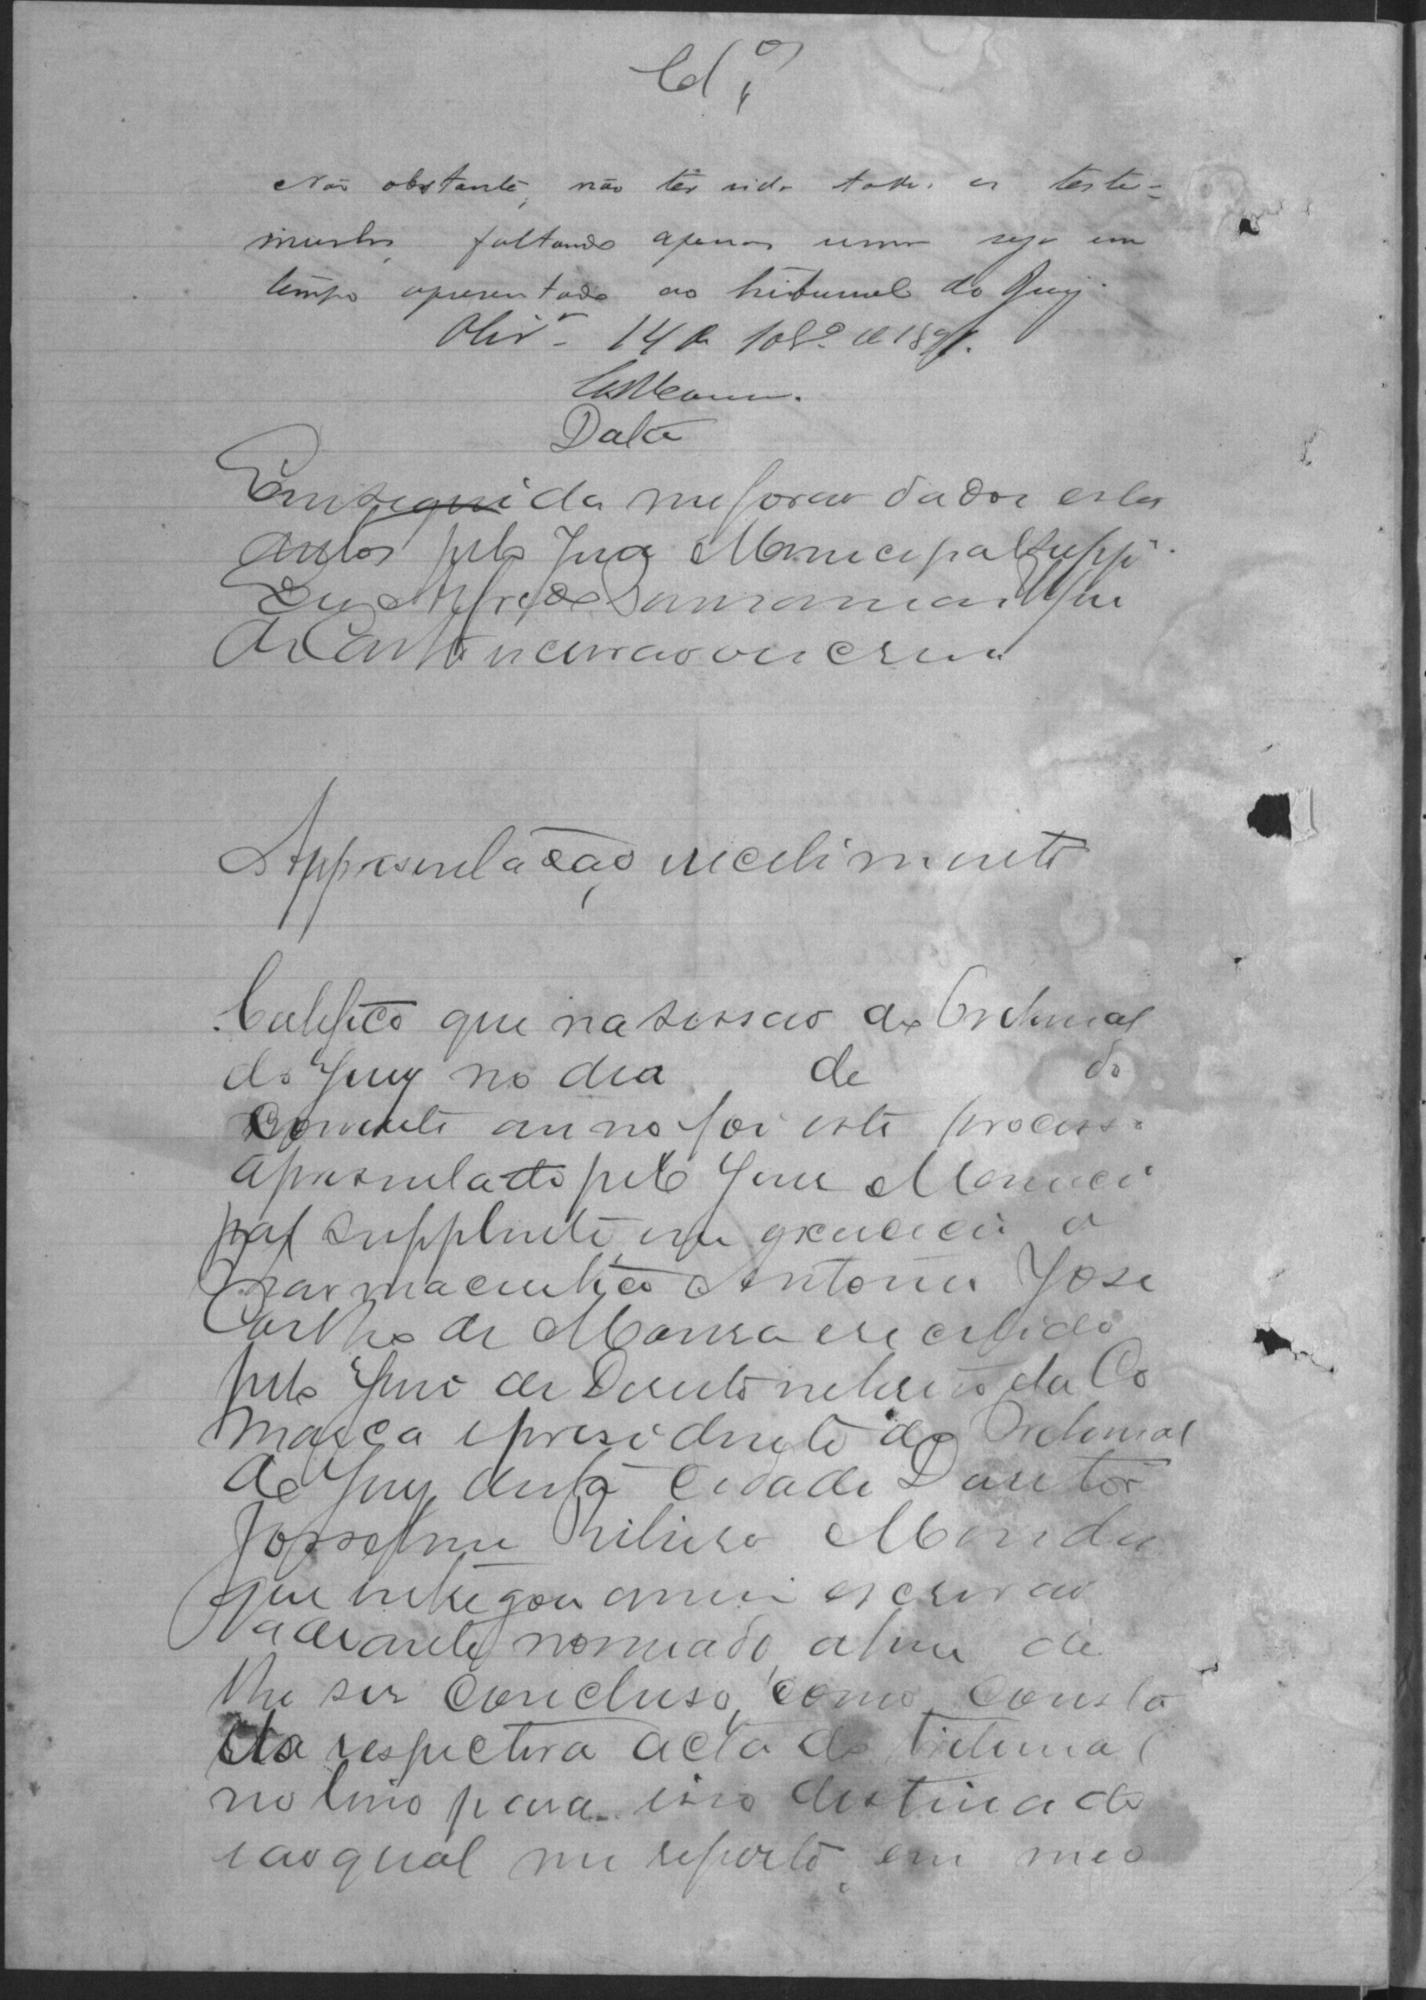 Cls.
Não obstante, não ter sido todas as teste-
munhas, faltando apenas uma seja em
tempo apresentado ao tribunal do Jury.
Olivª - 14 de 10bº de 189
Data
Em seguida me forao dados estes
autos pelo Juiz Municipal supp
Eu Alfredo
de Castro escrivao o escrevi
Appresentação e recebimento
Certifico que na sessao do Tribunal
do Jury no dia de do
corrente anno foi este processo
apresentado pelo Juiz Munici
pal supplente em exercicio o
Pharmaceutico Antonio José
Coelho de Moura e recebido
pelo Juiz de Direito interino da Co
marca e presidente do Tribunal
do Jury desta Cidade Doutor
Ribeiro Mendes
que entregou a mim escrivao
adiante nomeado afim de
lhe ser concluso, como consta
da respectiva acta do Tribunal
no livro para isso destinado
e ao qual me reporto, em meo